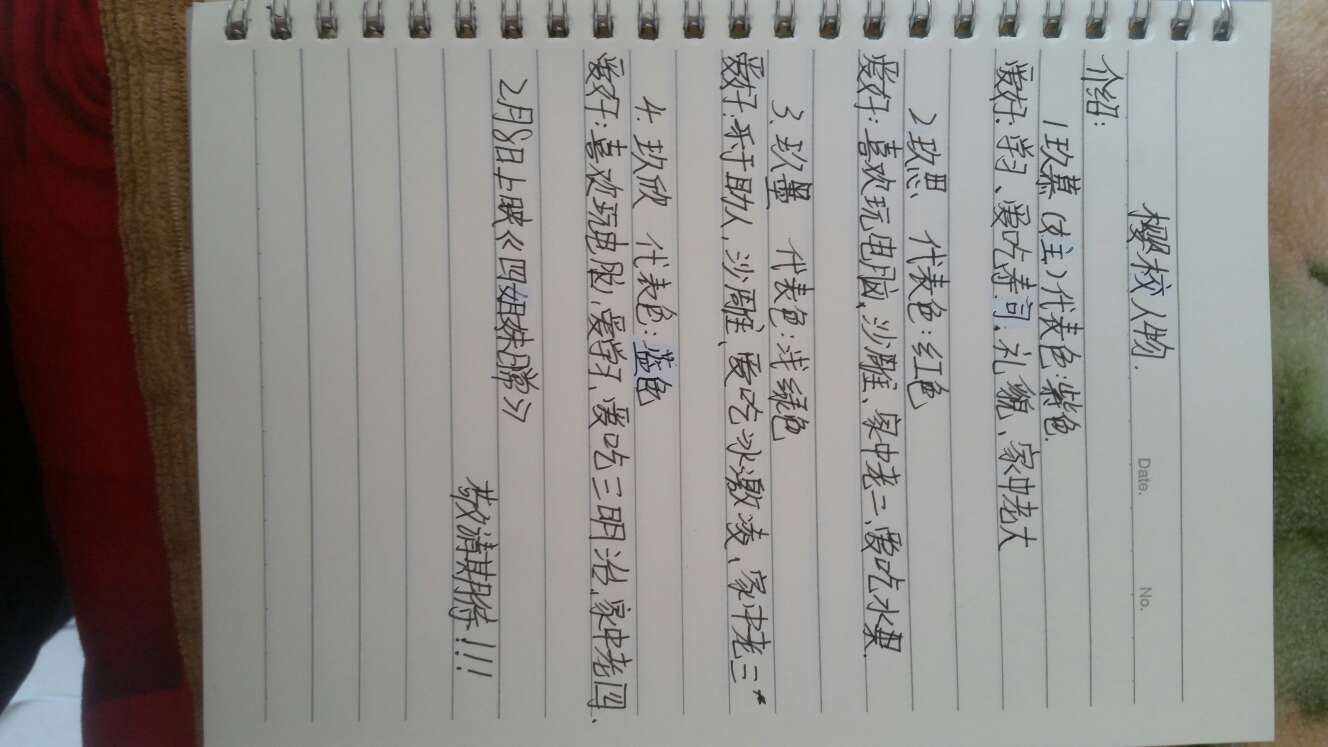 樱校人物.
Date. No.
介绍:
1玖慕(女主)代表色:紫色.
爱好:学习、爱吃寿司、礼貌、家中老大
2玖思 代表色:红色
爱好:喜欢玩电脑,沙雕、家中老二、爱吃水果.
3玖墨 代表色:浅绿色
爱好:乐于助人,沙雕、爱吃冰激凌、家中老三
4.玖欣 代表色:蓝色
爱好:喜欢玩电脑,爱学习、爱吃三明治,家中老四、
2月8日上映《四姐妹日常》
敬请期待!!!